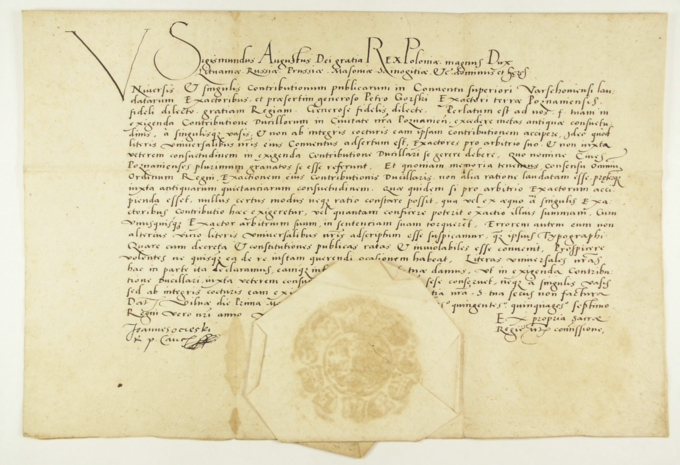 Sigismundus Augustus Dei gratia Rex Poloniæ, magnus Dux
Lituaniæ Russiæ, Prussiæ, Masoviæ, Samogitiæ, &c dominus et heres
Vniversis & singulis Contributionum publicarum in Conventu superiori Varschoviensi lau,
datarum Exactoribus, et præsertim generoso Petro Gorski Exactori terræ Poznaniensis,
fideli dilecto, gratiam Regiam. Generose fidelis dilecte, Perlatum est ad nos, tuam in
exigenda Contributione Ducillorum in Civitate nra Poznanien, excedere metas antiquæ consuetu,
dinis, a singulisque vasis, & non ab integris cocturis eam ipsam contributionem accipere, Ideo quod
literis universalibus nris eius Conventus adsertum est, Exactores pro arbitrio suo, & non iuxta
veterem consuetudinem in exigenda Contributione Ducillari se gerere debere, Quo nomine Cives
Poznanienses plurimum gravatos se esse referunt. Et quoniam memoria tenemus, consensu omnium
Ordinum Regni, Exactionem eius Contributionis Ducillaris, non alia ratione laudatam esse,
iuxta antiquarum quietantiarum consuetudinem. Quæ quidem si pro arbitrio Exactorum acci,
pienda esset, nullus certus modus neque ratio constare possit, qua vel ex æquo a singulis Exa,
ctoribus Contributio hæc exigeretur, vel quantam conficere poterit exactio illius summam, Cum
unusquisque Exactor arbitrium suum, in sententiam suam torquerit. Errorem autem eum non
alterius vitio literis universalibus nris adscriptum esse suspicamur, ipsius Typographi.
Quare cum decreta & constitutiones publicas ratas & inviolabiles esse convenit, Prospicere
volentes ne quisque ea de re instam querendi ocasionem habeat, Literas universales nras
hac in parte ita declaramus, tuæ damus, ut in exigenda Contribu,
tione Ducillari, iuxta veterem sese conservet, neque a singulis vasis
sed ab integris cocturis eam nra, & tua secus non factura
Dat Vilnæ die Prima quingentes quinquages septimo
Regni vero nri anno Ex propria Sacræ
Regiæ comissione,
Joannes